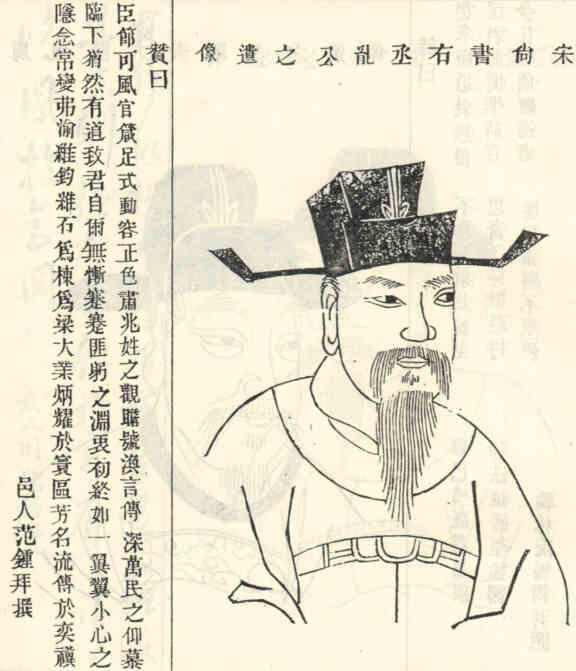 宋尙書右丞亂公之遺像
贊曰
臣節可風官箴足式動容正色肅兆姓之觀聽號渙言傳深萬民之仰慕
臨下猶然有道致君自爾無慚蹇蹇匪躬之淵衷初終如一翼翼小心之
隱念常變弗渝雖鈞雖石爲棟爲梁大業炳耀於寰區芳名流傳於奕禩
邑人范鍾拜撰